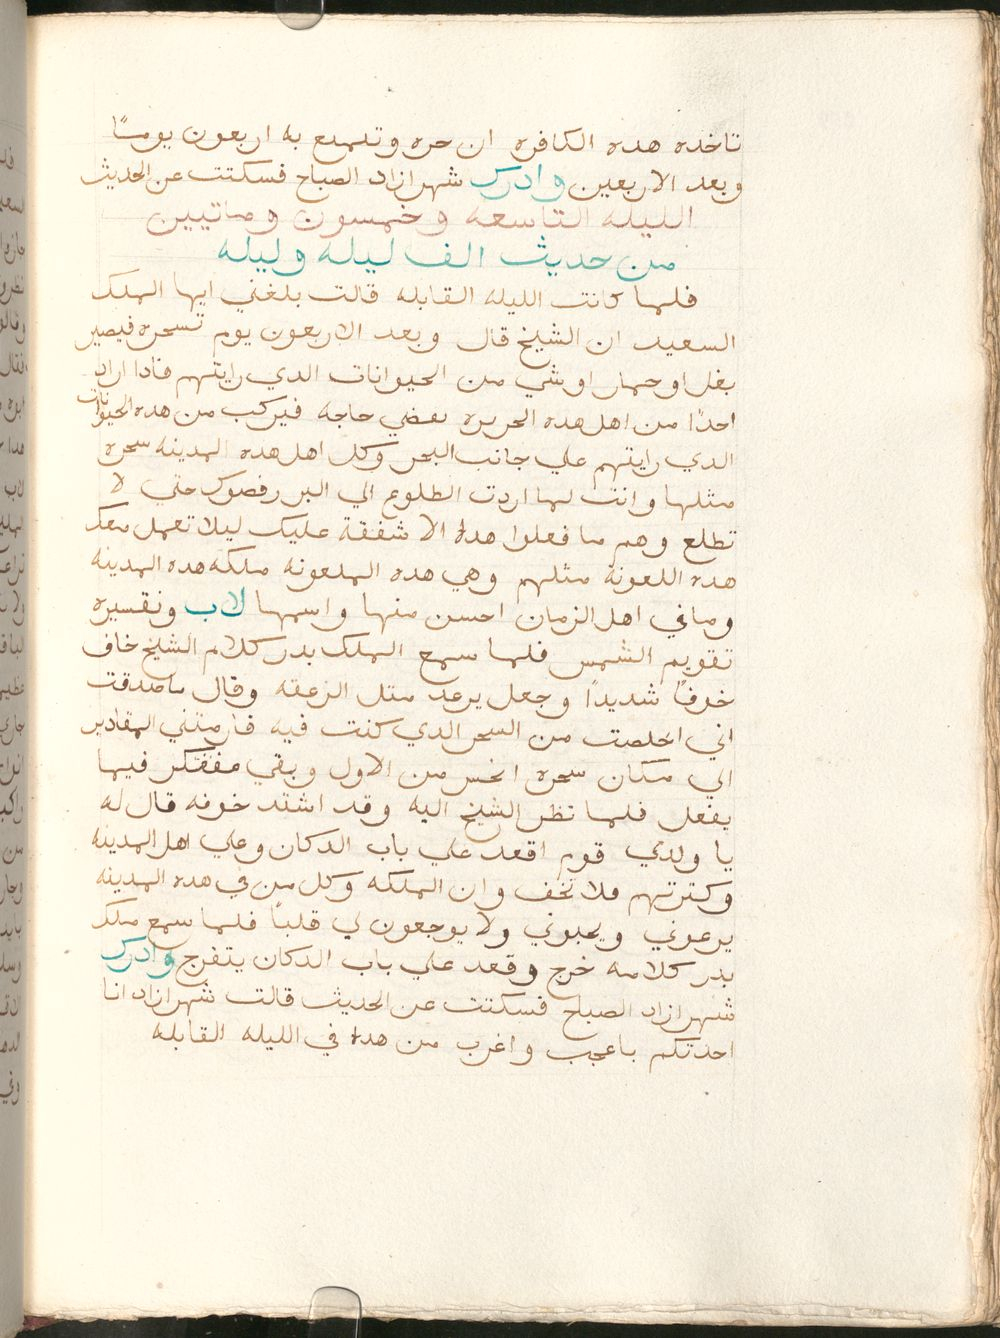 تاخده هده الكافره ان حره وتلمع به اربعون يومًا
وبعد الاربعين وادرك شهرازاد الصباح فسكتت عن الحديث
الليله التاسعه وخمسون وماتيين
من حديث الف ليله وليله
فلما كانت الليله القابله قالت بلغني ايها الملك
السعيد ان الشيخ قال وبعد الاربعون يوم تسحره فيصير
بغل او حمار او شي من الحيوانات الدي رايتهم فادا اراد
احدًا من اهل هده الحريره يقضي حاجه فيركب من هده الحيوانات
الدي رايتهم علي جانب البحر وكل اهل هده المدينه سحره
مثلها وانت لما اردت الطلوع الي البر رفصوك حتي لا
تطلع وهم ما فعلوا هدا الا شفقة عليك ليلا تعمل معك
هده اللعونة مثلهم وهي هده الملعونه ملكه هده المدينه
وما في اهل الزمان احسن منها واسمها لاب وتفسيره
تقويم الشمس فلما سمع الملك بدر كلام الشيخ خاف
خوفًا شديدًا وجعل يرعد متل الزعقه وقال ما صدقت
اني اخلصت من السحر الدي كنت فيه فارمتني المقادير
الي مكان سحره انحس من الاول وبقي مفتكر فيما
يفعل فلما نظر الشيخ اليه وقد اشتد خوفه قال له
يا ولدي قوم اقعد علي باب الدكان وعلي اهل المدينه
وكترتهم فلا تخف وان الملكه وكل من في هده المدينه
يرعوني ويحبوني ولا يوجعون لي قلبًا فلما سمع ملك
بدر كلامه خرج وقعد علي باب الدكان يتفرج وادرك
شهرازاد الصباح فسكتت عن الحديث قالت شهرازاد انا
احدتكم باعجب واغرب من هدا في الليله القابله